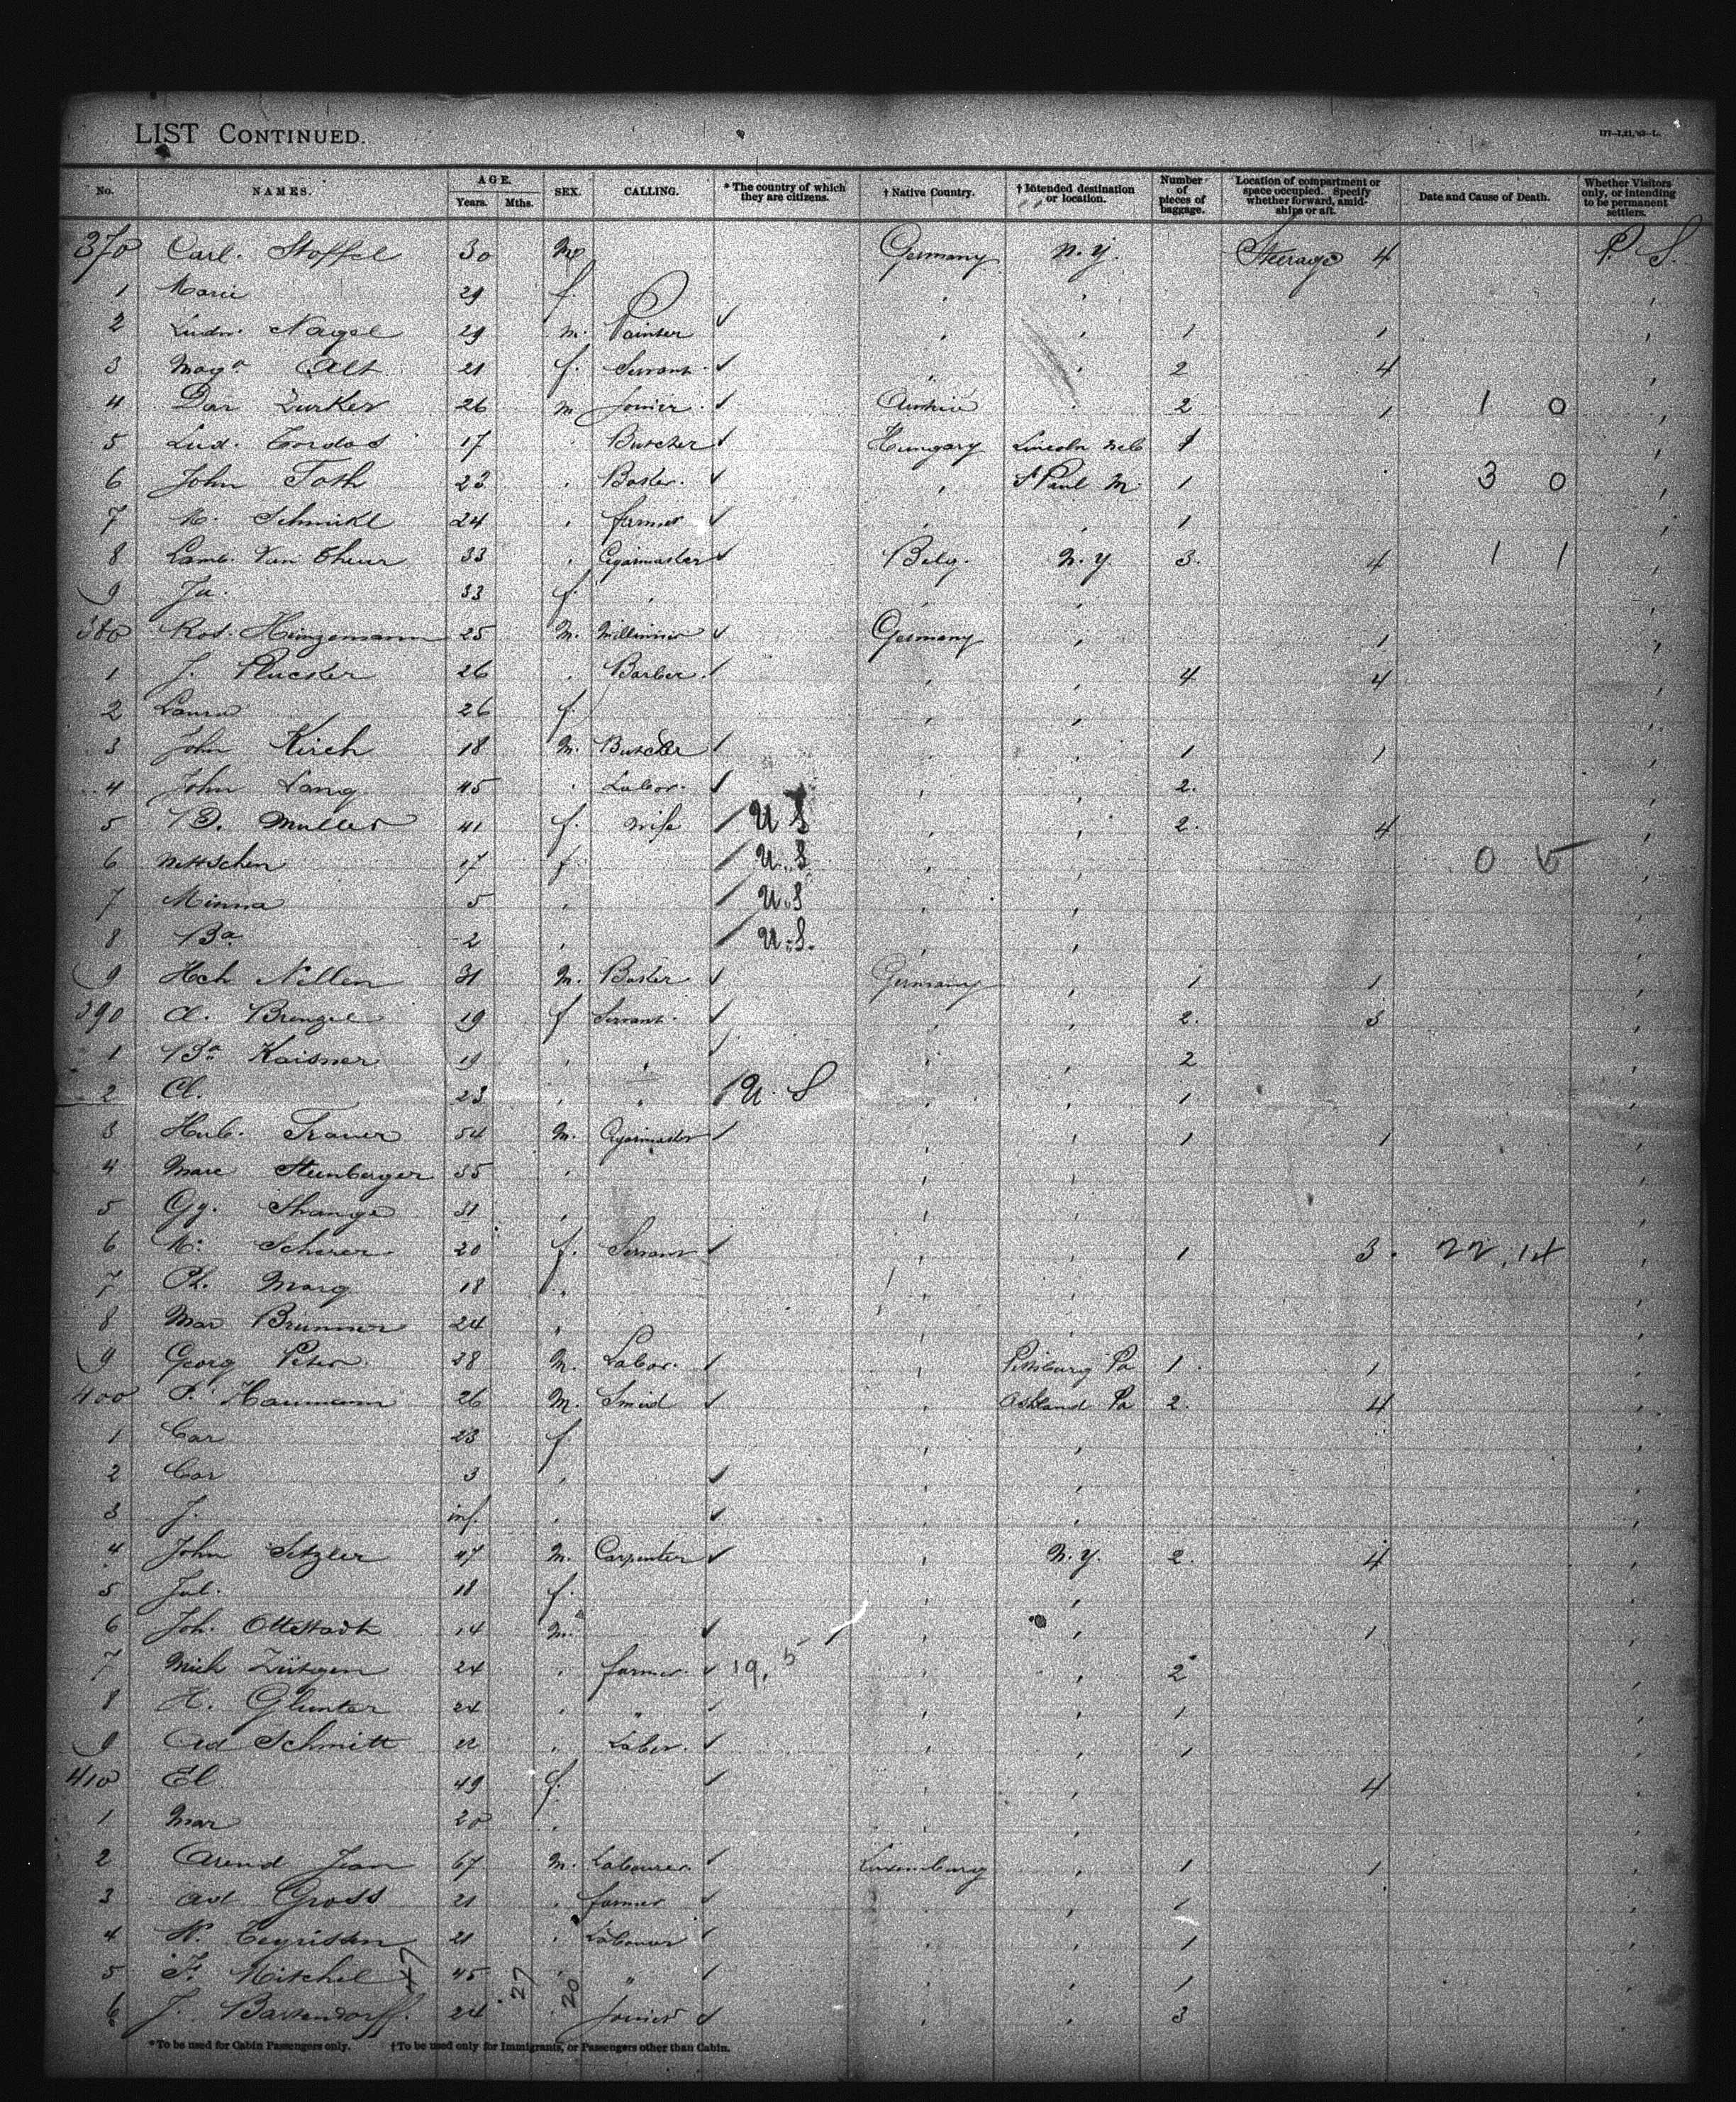 LIST CONTINUED.
No. NAMES. AGE. Years. Mths. SEX. CALLING. * The country of which they are citizens. † Native Country. † Intended destination or location. Number of pieces of baggage. Location of compartment or space occupied. Specify whether forward, amidships or aft. Date and Cause of Death. Whether Visitors only, or intending to be permanent settlers.
370 Carl. Stoffel 30 m Germany N.Y. Steerage 4 P. S.
1 Marie 29 f. " " "
2 Ludw. Nagel 29 m. Painter ✓ " " 1 1 "
3 Mag a Alt 21 f. Servant ✓ " " 2 4 "
4 Dav Zurker 26 m Joiner ✓ Austria " 2 1 1 0 "
5 Lud. Tordas 17 " Butcher ✓ Hungary Lincoln Neb 1 "
6 John Toth 23 " Baker ✓ " St Paul M 1 " 3 0 "
7 M. Schmikl 24 " farmer ✓ " " 1 "
8 Lamb. Van Theur 33 " Cigarmaker ✓ Belg. N.Y. 3. 4 1 1 "
9 Ju. 33 f. " " " "
380 Rod. Heinzemann 25 M. ✓ Germany " 1 "
1 J. Plucker 26 " Barber ✓ " " 4 4 "
2 Laura 26 f. " " "
3 John Kirch 18 M. Butcher ✓ " " 1 1 "
4 John Lang 45 " Labor. ✓ " " 2. "
5 B. Muller 41 f. Wife / U S " " 2. 4 "
6 Nettchen 17 f / U.S " " 0 5 "
7 Minna 5 " / U.S " " "
8 Ba 2 " / U.S. " " "
9 Hch Nellen 31 M. Baker ✓ Germany " 1 1 "
390 A. Brengel 19 f Servant ✓ " " 2. 3 "
1 Ba Kaisner 19 " " ✓ " " 2 "
2 Cl. 23 " " / U. S " " 1 "
3 Hub. Traver 54 M. Cigarmaker ✓ " " 1 1 "
4 Marc Steinberger 35 " " " "
5 Gg. Shange 31 " " " "
6 M. Scherer 20 f. Servant ✓ " " 1 3. 22, 14 "
7 Ph. Marg 18 " " " "
8 Mar Brunner 24 " " " "
9 Georg Peter 28 M. Labor. ✓ " Pittsburg Pa 1. 1 "
400 P. Haumann 26 M. Smid ✓ " Ashland Pa 2. 4 "
1 Car 23 f " " "
2 Car 3 " ✓ " " "
3 J. inf. " ✓ " " "
4 John Setzler 47 M. Carpenter ✓ " N.Y. 2. 4 "
5 Jul. 18 f. " " "
6 Joh. Ottstadt 14 M. ✓ " " 1 "
7 Mich Zütgen 24 " farmer ✓ 19, 5 " " 2 "
8 H. Glunter 24 " " ✓ " " 1 "
9 Ad Schmitt " Labor. ✓ " " 1 "
410 El 49 f. ✓ " " 4 "
1 Mar 20 " " " "
2 Arend Jean 67 M. Labourer ✓ Luxemburg " 1 1 "
3 Ad Gross 21 " farmer ✓ " " 1 "
4 N. 21 " Labourer ✓ " " 1 "
5 F. Mitchel 45 " " ✓ " " 1 "
6 J. Bartendorff. 24 Joiner ✓ " " 3 "
47 27 20
*To be used for Cabin Passengers only. †To be used only for Immigrants, or Passengers other than Cabin.